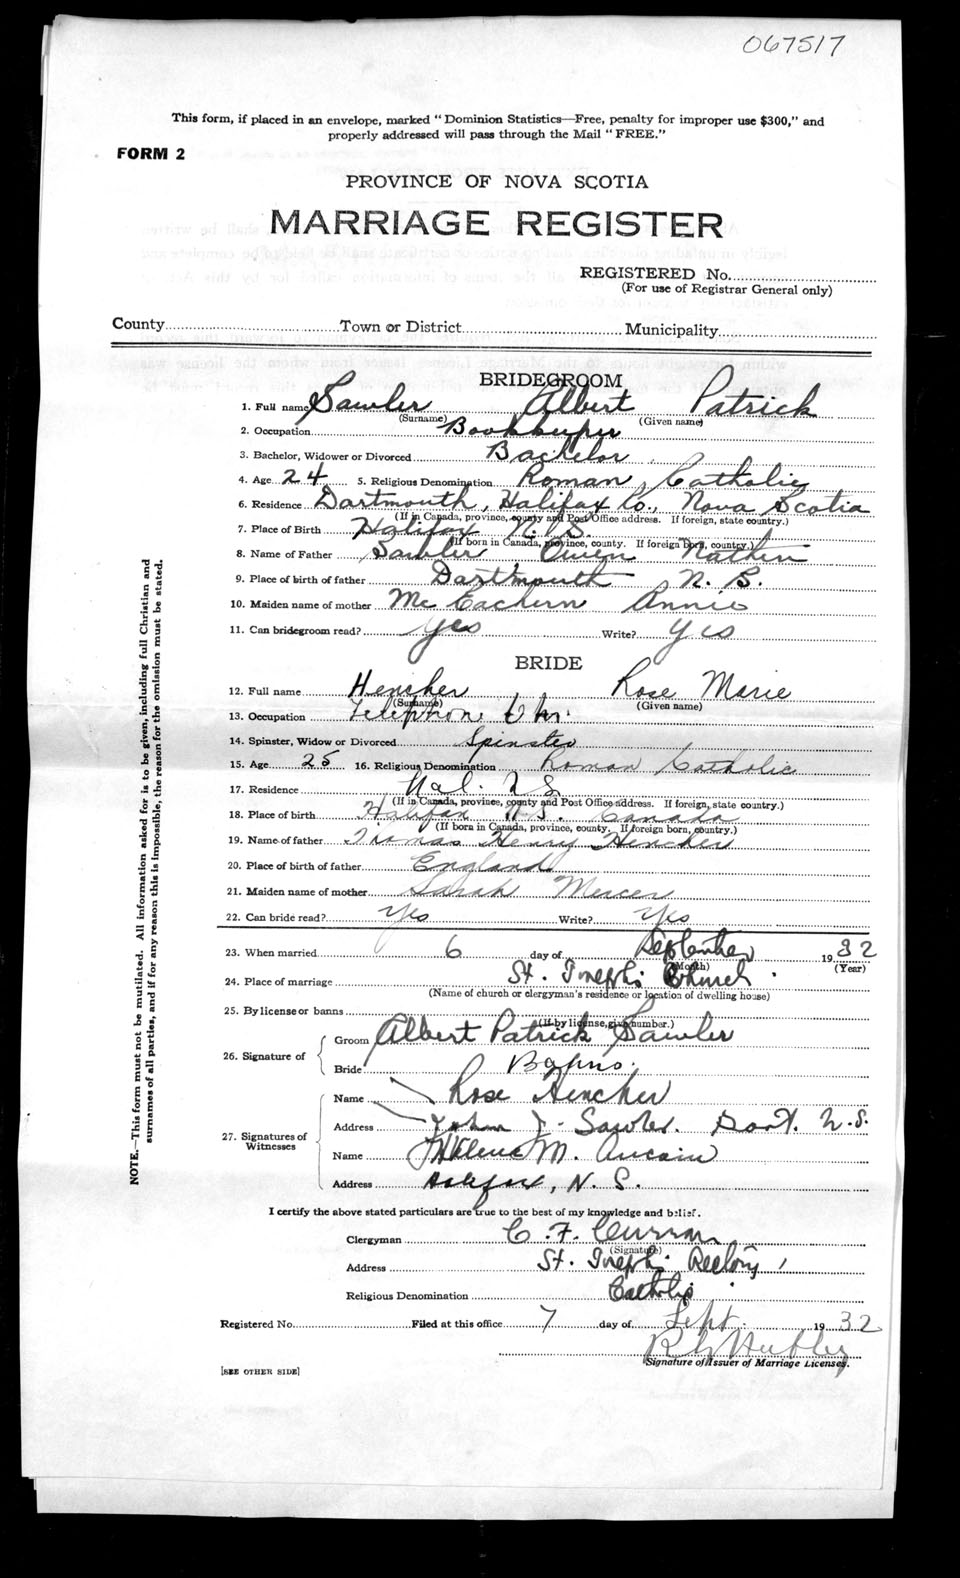 067517
This form, if placed in an envelope, marked "Dominion Statistics—Free, penalty for improper use $300," and
properly addressed will pass through the Mail "FREE."
FORM 2
PROVINCE OF NOVA SCOTIA
MARRIAGE REGISTER
REGISTERED No.
(For use of Registrar General only)
County Town or District Municipality
BRIDEGROOM
1. Full name Sawler Albert Patrick
(Surname) (Given name)
2. Occupation Bookkeeper
3. Bachelor, Widower or Divorced Bachelor
4. Age 24 5. Religious Denomination Roman Catholic
6. Residence Dartmouth, Halifax Co., Nova Scotia
(If in Canada, province, county and Post Office address. If foreign, state country.)
7. Place of Birth Halifax N.S.
(If born in Canada, province, county. If foreign born, country.)
8. Name of Father Sawler Owen Nathen
9. Place of birth of father Dartmouth N. S.
10. Maiden name of mother McEachern Annie
11. Can bridegroom read? yes Write? yes
BRIDE
12. Full name Hencher Rose Marie
(Surname) (Given name)
13. Occupation Telephone
14. Spinster, Widow or Divorced Spinster
15. Age 25 16. Religious Denomination Roman Catholic
17. Residence Hal. N.S.
(If in Canada, province, county and Post Office address. If foreign, state country.)
18. Place of birth Halifax N.S. Canada
(If born in Canada, province, county. If foreign born, country.)
19. Name of father Thomas Henry Hencher
20. Place of birth of father England
21. Maiden name of mother Sarah Mercer
22. Can bride read? yes Write? yes
23. When married 6 day of September 1932
(Month) (Year)
24. Place of marriage St. Joseph's Church
(Name of church or clergyman's residence or location of dwelling house)
25. By license or banns
(If by license, give number.)
26. Signature of
Groom Albert Patrick Sawler
Bride Banns.
27. Signatures of
Witnesses
Name Rose Hencher
Address John J. Sawler. Dart. N.S.
Name Helena M. Aucoin
Address Halifax, N. S.
I certify the above stated particulars are true to the best of my knowledge and belief.
Clergyman C. F. Curran
(Signature)
Address St. Joseph's Rectory
Religious Denomination Catholic
Registered No. Filed at this office 7 day of Sept. 1932
Signature of Issuer of Marriage Licenses.
[SEE OTHER SIDE]
NOTE.—This form must not be mutilated. All information asked for is to be given, including full Christian and
surnames of all parties, and if for any reason this is impossible, the reason for the omission must be stated.